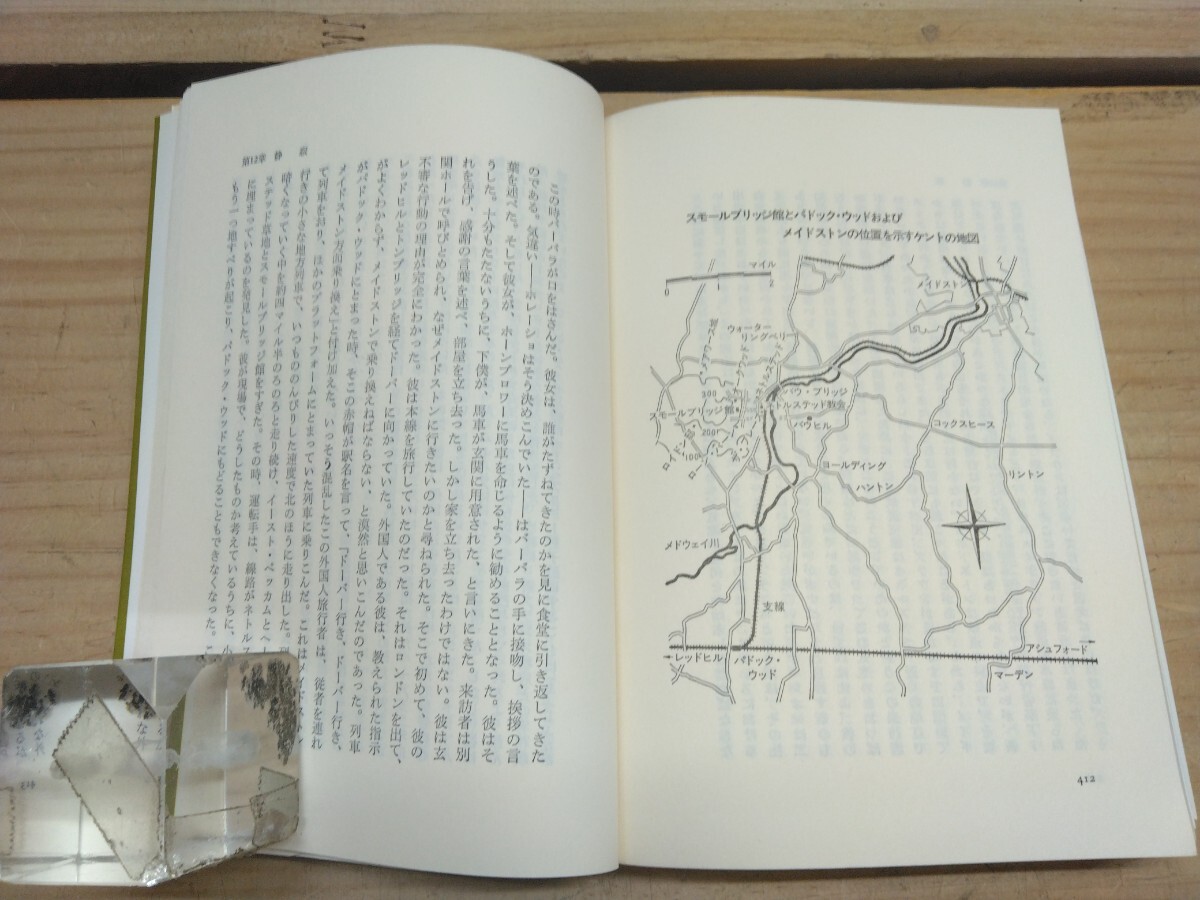 スモールブリッジ館とパドック・ウッドおよび
メイドストンの位置を示すケントの地図
マイル
0 1 2
メイドストン
ウォーター
リングベリー
300
200
100
スモールブリッジ館
バウ・ブリッジ
バウヒル
コックスヒース
ヨールディング
ハントン
リントン
メドウェイ川
支線
レッドヒル
パドック・
ウッド
アシュフォード
マーデン
412
第12章 静 寂
この時バーバラが口をはさんだ。彼女は、誰がたずねてきたのかを見に食堂に引き返してきた
のである。気違い――ホレーショはそう決めこんでいた――はバーバラの手に接吻し、挨拶の言
葉を述べた。そして彼女が、ホーンブロワーに馬車を命じるように勧めることとなった。彼はそ
うした。十分もたたないうちに、下僕が、馬車が玄関に用意された、と言いにきた。来訪者は別
れを告げ、感謝の言葉を述べ、部屋を立ち去った。しかし家を立ち去ったわけではない。彼は玄
関ホールで呼びとめられ、なぜメイドストンに行きたいのかと尋ねられた。そこで初めて、彼の
不審な行動の理由が完全にわかった。彼は本線を旅行していたのだった。それはロンドンを出て、
レッドヒルとトンブリッジを経てドーバーに向かっていた。外国人である彼は、教えられた指示
がよくわからず、メイドストンで乗り換えねばならない、と漠然と思いこんだのであった。列車
がパドック・ウッドにとまった時、そこの赤帽が駅名を言って、「ドーバー行き、ドーバー行き、
メイドストン方面乗り換え」と付け加えた。いっそう混乱したこの外国人旅行者は、従者を連れ
て列車をおり、ほかのプラットフォームにとまっていた列車に乗りこんだ。これはメイドストン
行きの小さな地方列車で、いつもののんびりした速度で北のほうに走り出した。
暗くなっていく中を約四マイル半のろのろと走り続け、イースト・ペッカムとヘー
ステッド草地とスモールブリッジ館をすぎた。その時、運転手は、線路がネトルス
に埋まっているのを発見した。彼が現場で、どうしたものか考えているうちに、小
もう一つ地すべりが起こり、パドック・ウッドにもどることもできなくなった。